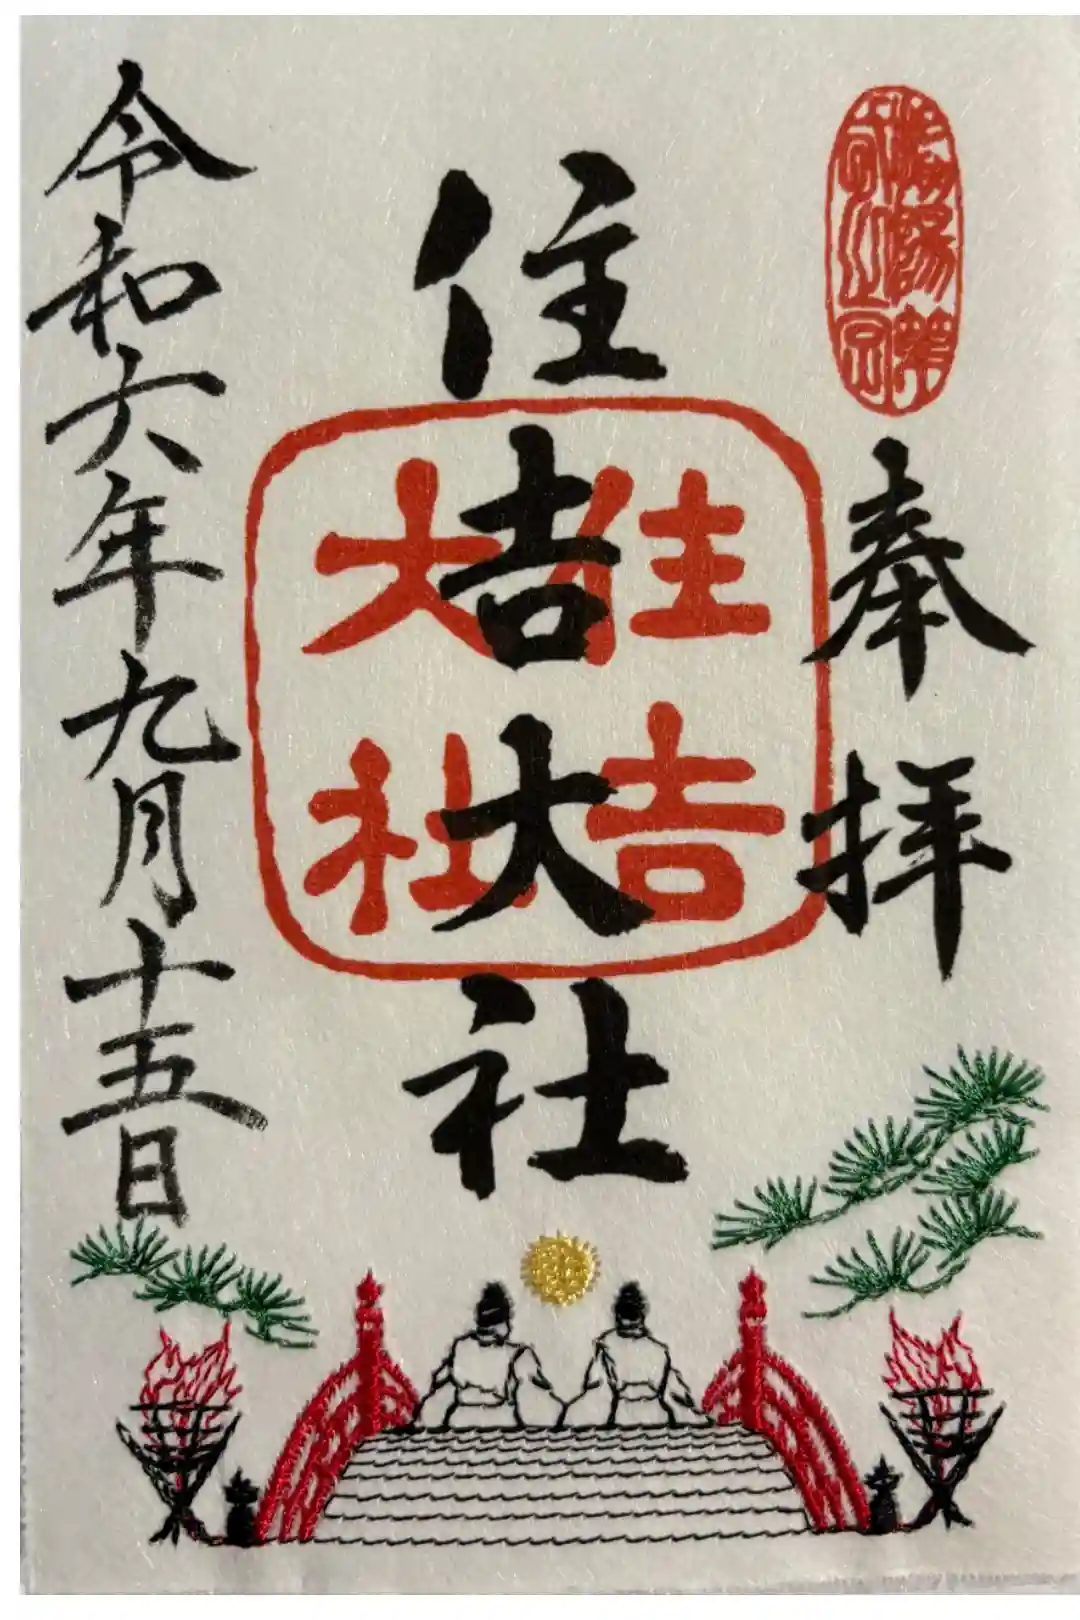 奉拝
住吉大社
住吉
大社
令和六年九月十五日